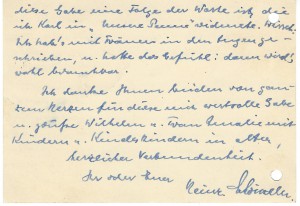 diese Gabe eine Folge der Worte ist, die
ich Karl in „ widmete.
Ich hab's mit Tränen in den Augen ge-
schrieben, u. hatte das Gefühl: davon wird
wohl
Ich danke Ihnen beiden von gan-
zem Herzen für diese mir wertvolle Gabe
u. grüße Wilhelm u. Frau Amalie mit
Kindern u. Kindeskindern in alter,
herzlicher Verbundenheit.
Ihr oder Euer
Heinz